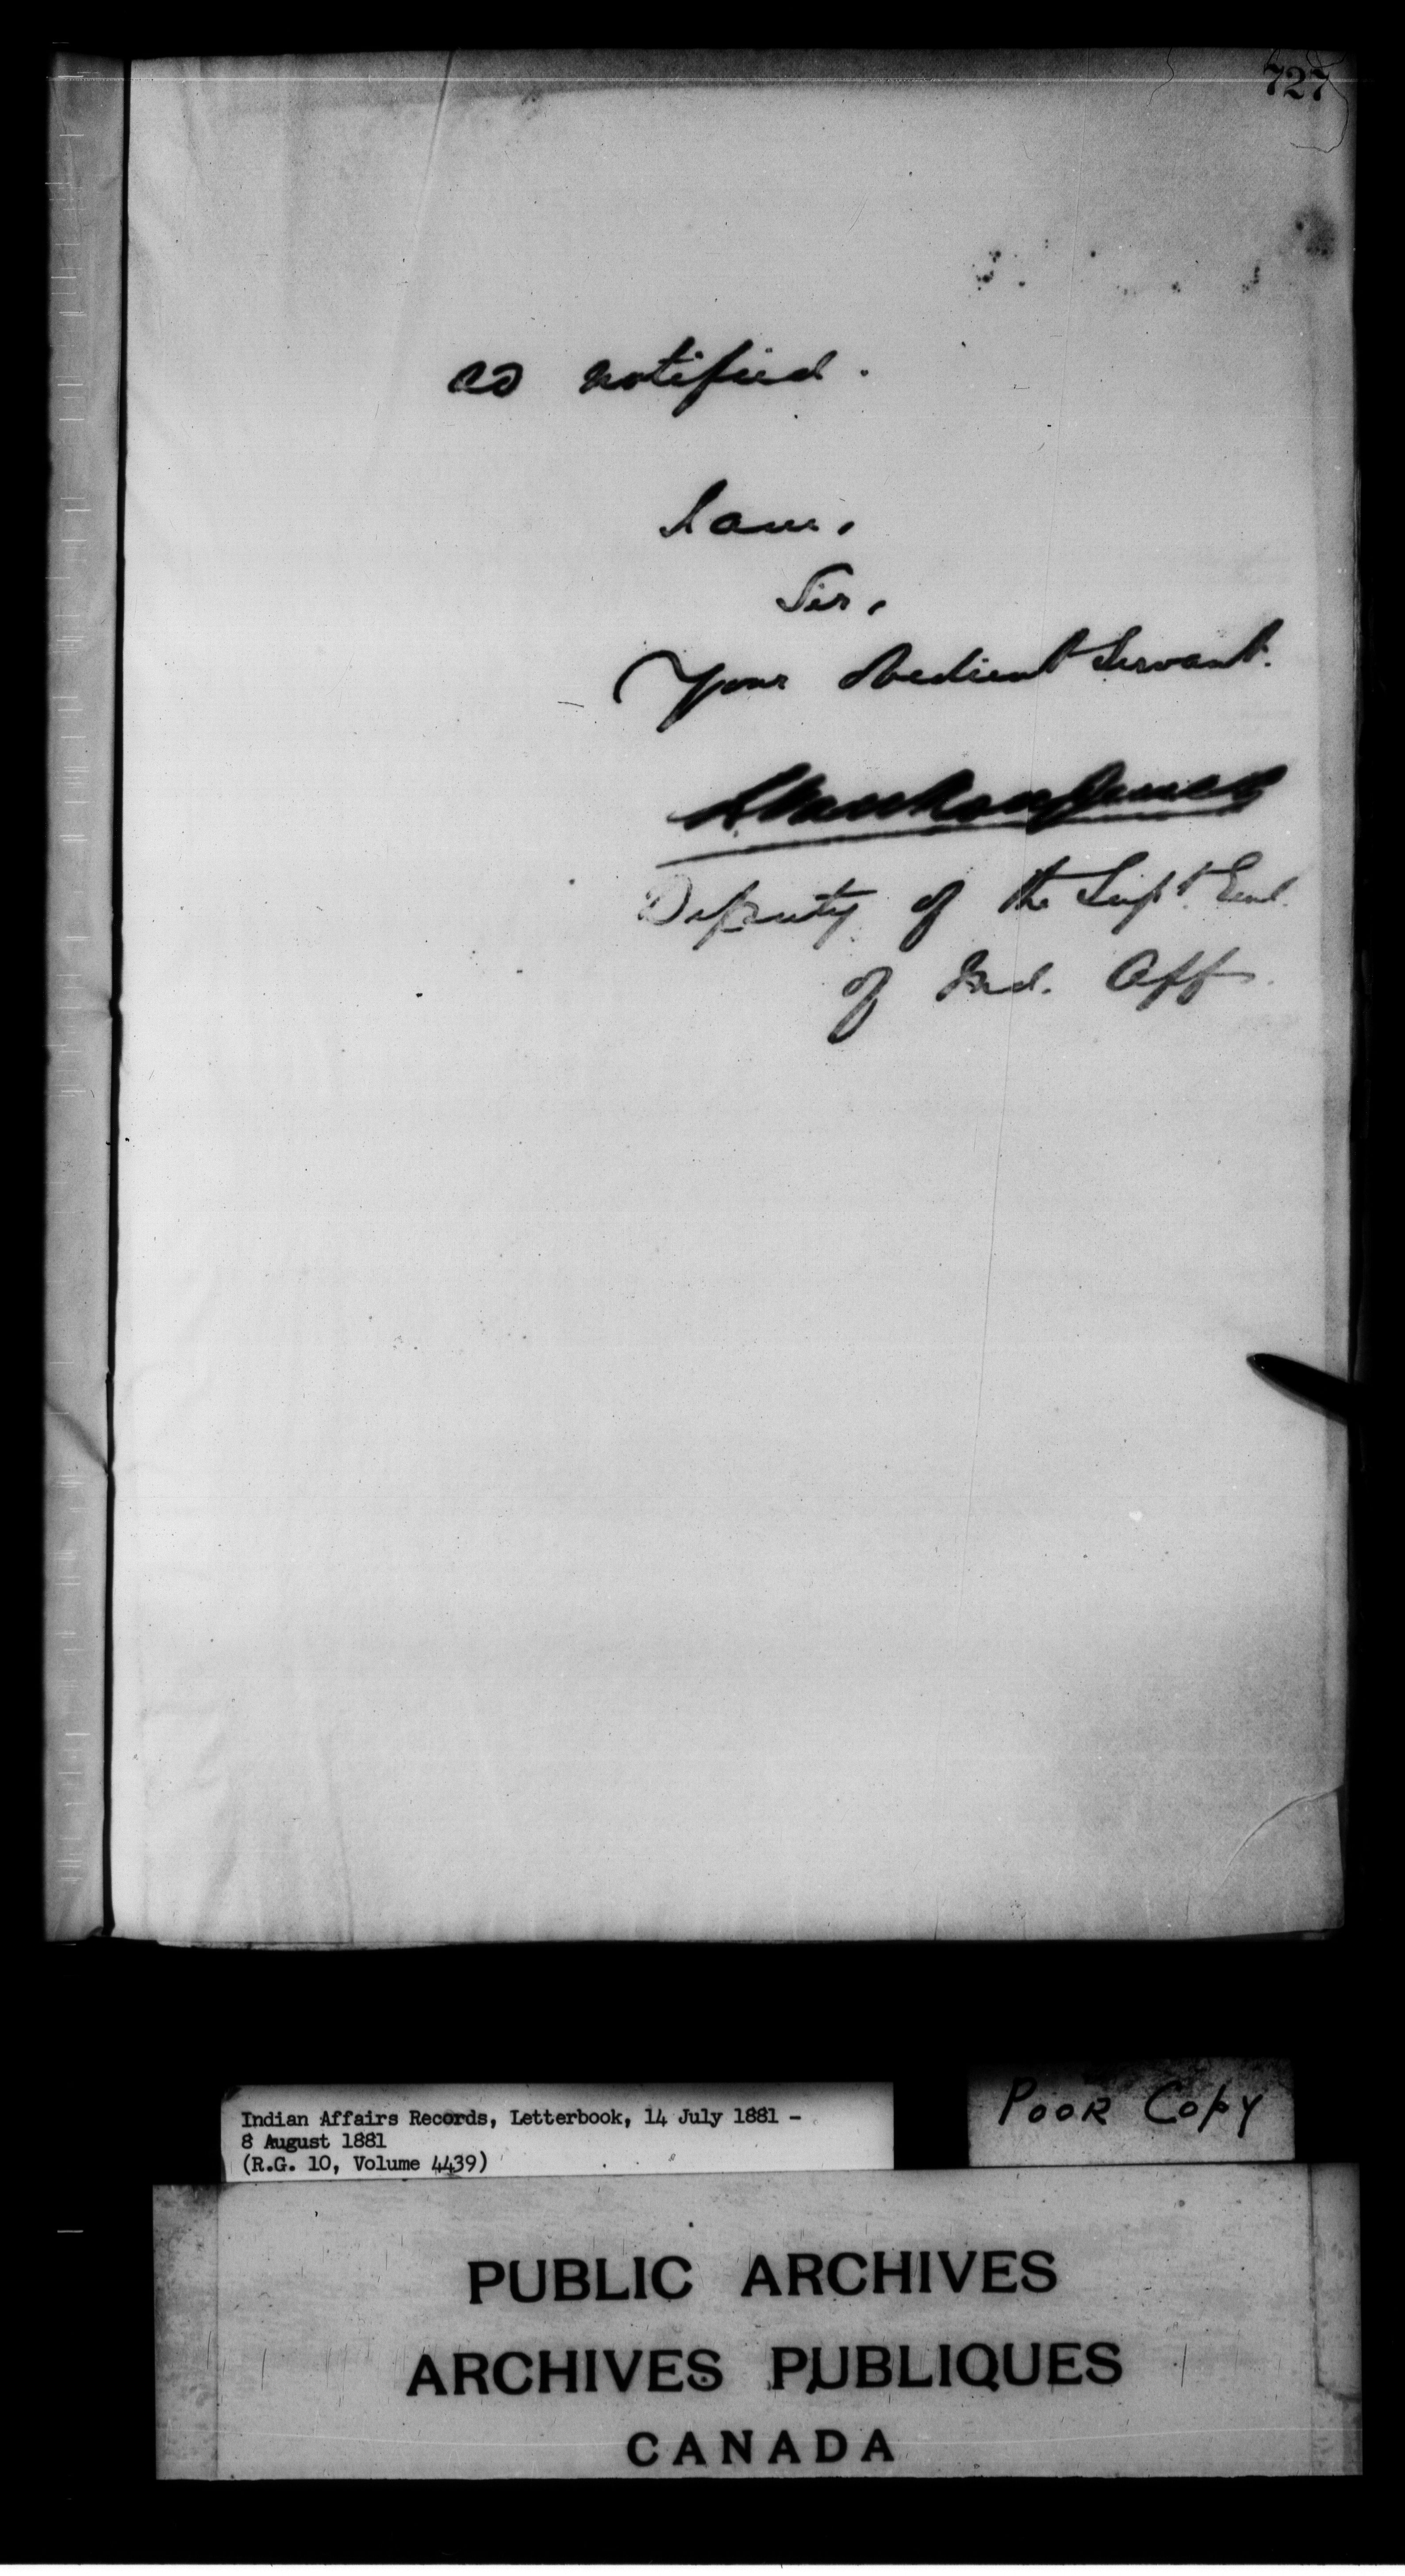 727
so notified.
I am,
Sir,
Your Obedient Servant.
L. VanKoughnet
Deputy of the Supt. Genl.
of Ind. Aff.
Indian Affairs Records, Letterbook, 14 July 1881 -
8 August 1881
(R.G. 10, Volume 4439)
POOR COPY
PUBLIC ARCHIVES
ARCHIVES PUBLIQUES
CANADA